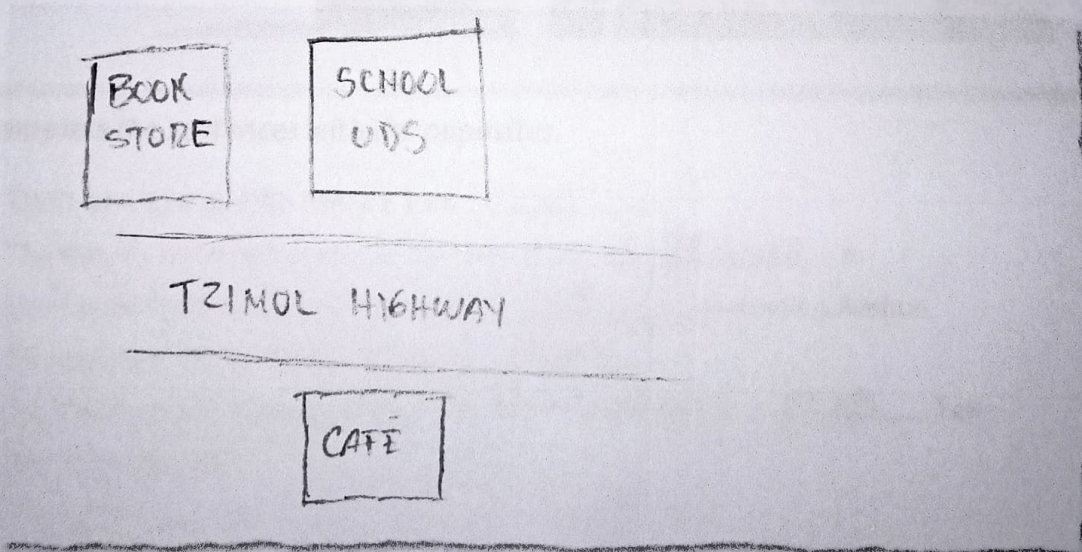 BOOK
STORE
SCHOOL
UDS
TZIMOL HIGHWAY
CAFE